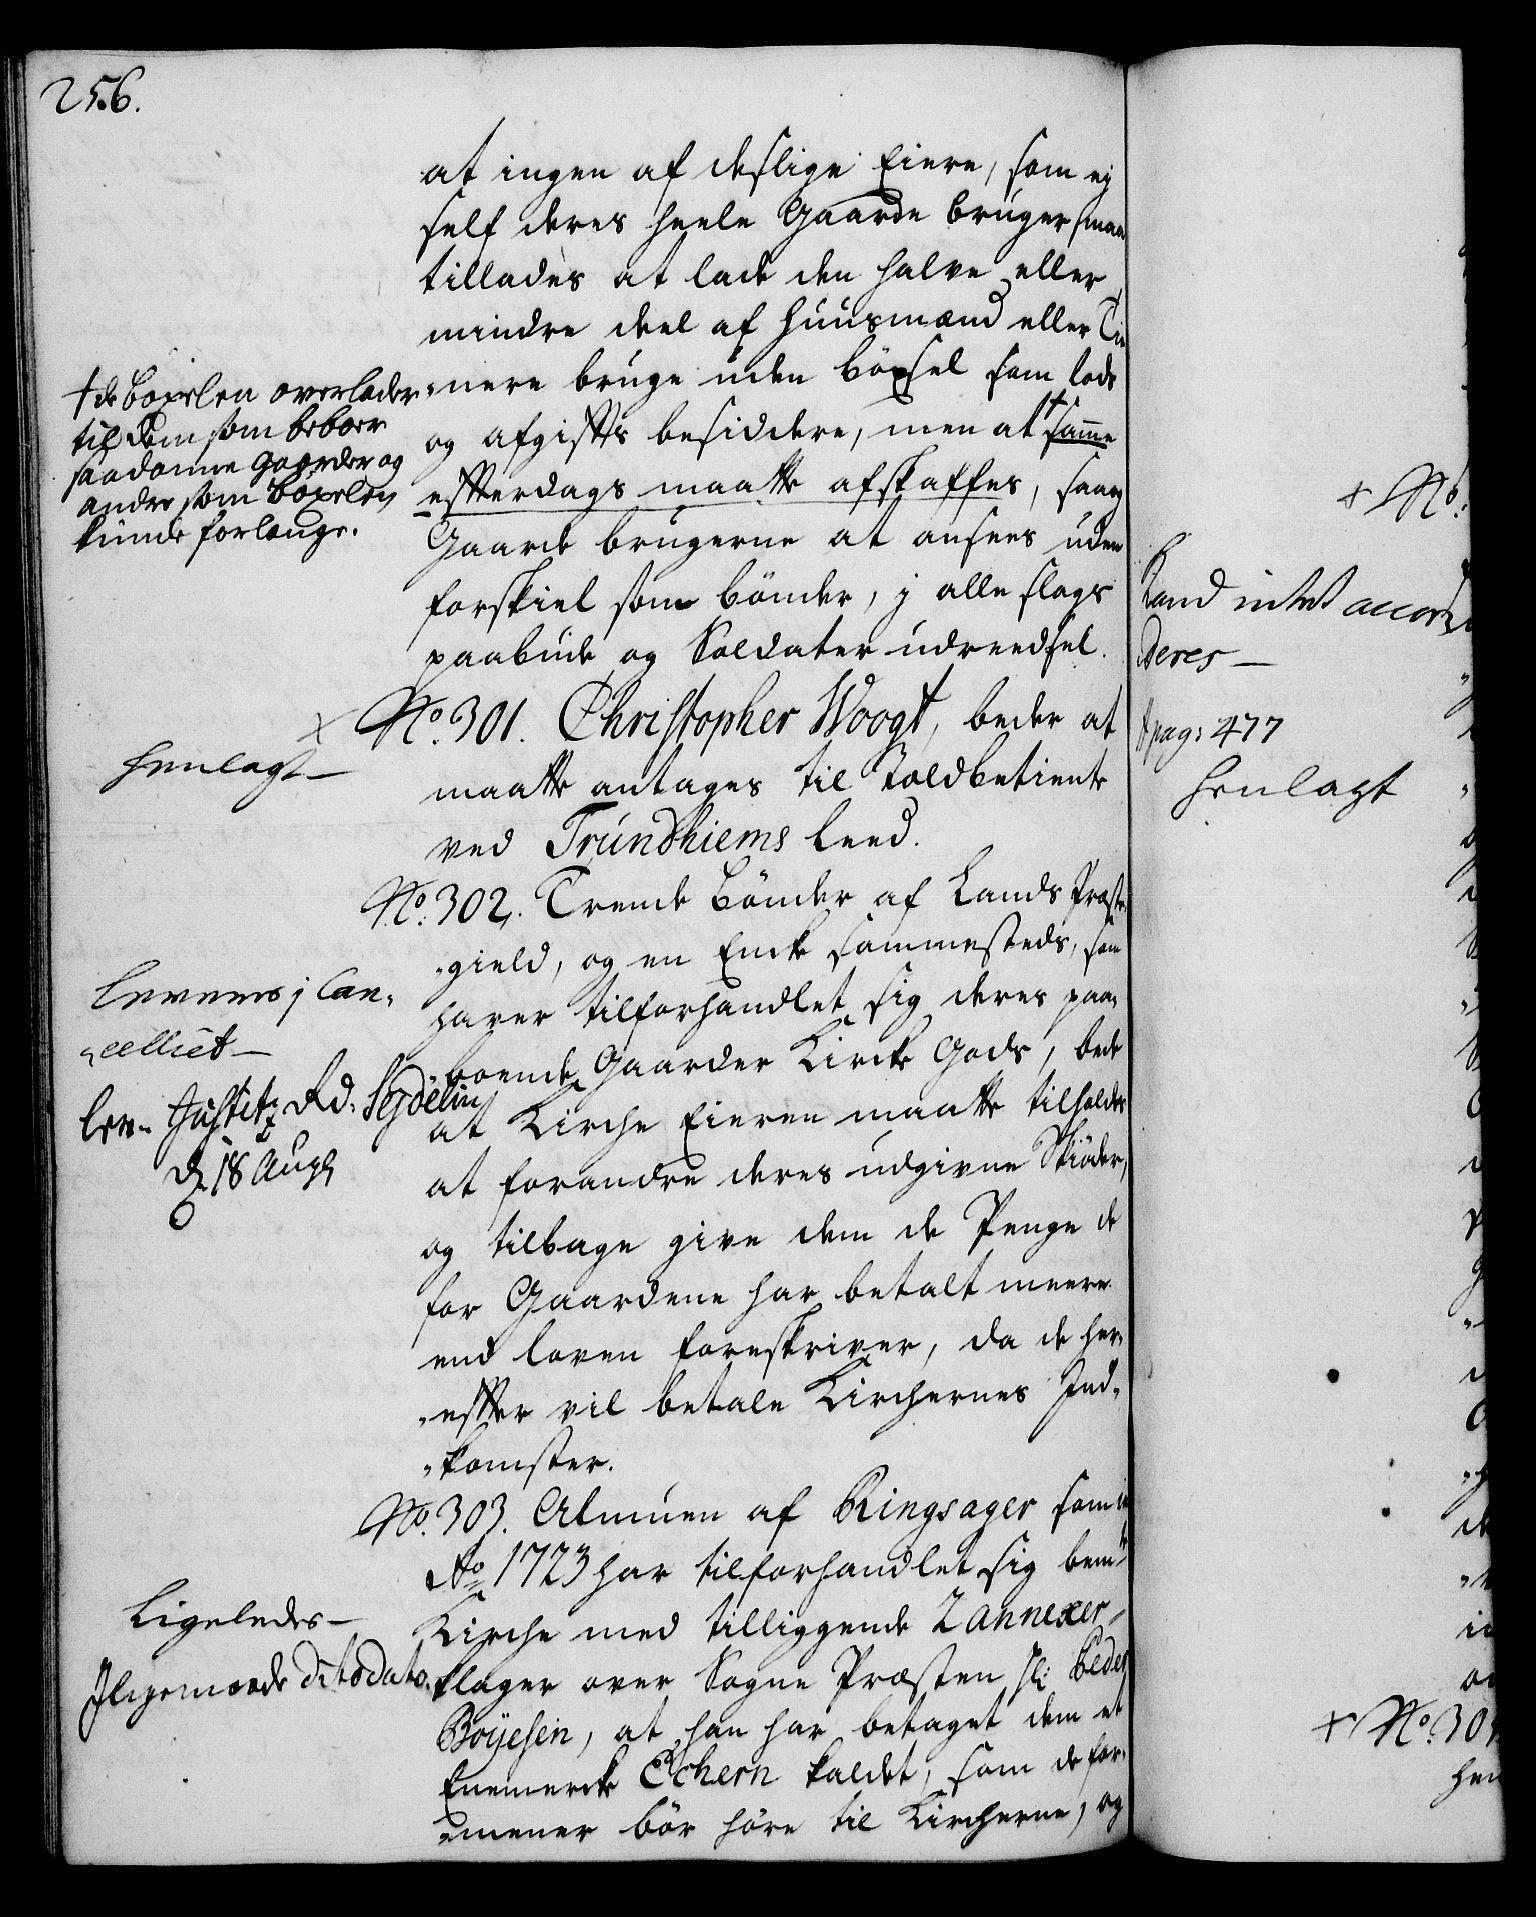 256.
at ingen af deslige Eiere, som ej
self deres heele Gaarde bruger, maa
tillades at lade den halve eller
mindre deel af Huusmænd eller Tie
nere bruge uden böxsel som lods
og afgifts besiddere, men at † samme
effterdags maatte afskaffes, saa
Gaarde brugerne at ansees uden
forskiel som bönder, j alle slags
paabude og Soldater udreedsel.
† de Boxelen overlader
til dem som beboer
saadanne Gaarder og
andre som Boxelen
kunde forlange.
× No. 301. Christopher Woogt, beder at
maatte antages til Toldbetiente
ved Trundhiems leed.
Henlagt –
No. 302. Trende Bönder af Lands Præste
gield, og en Encke sammesteds, som
haver tilforhandlet sig deres paa
boende Gaarder Kircke Gods, bede
at Kirche Eieren maatte tilholdes
at forandre deres udgivne Skiöder,
og tilbage give dem de Penge de
for Gaardene har betalt meere
end loven foreskriver, da de her
effter vil betale Kirchernes Ind
komster.
Leveres j Can
celliet –
Lev. Justitz Rd. Seydelin
d. 18 Aug
No. 303. Almuen af Ringsager som
Ao 1723 har tilforhandlet sig bemte
Kirche med tilliggende 2 annexer
klager over Sogne Præsten Hr. Peder
Böyesen, at han har betaget dem et
Enemercke Echern kaldet, som de for
mener bör höre til Kircherne, og
Ligeledes –
Jligemaade dito dato.
× No.
Kand intet accor
deres –
† pag: 477
Henlagt
× No. 30